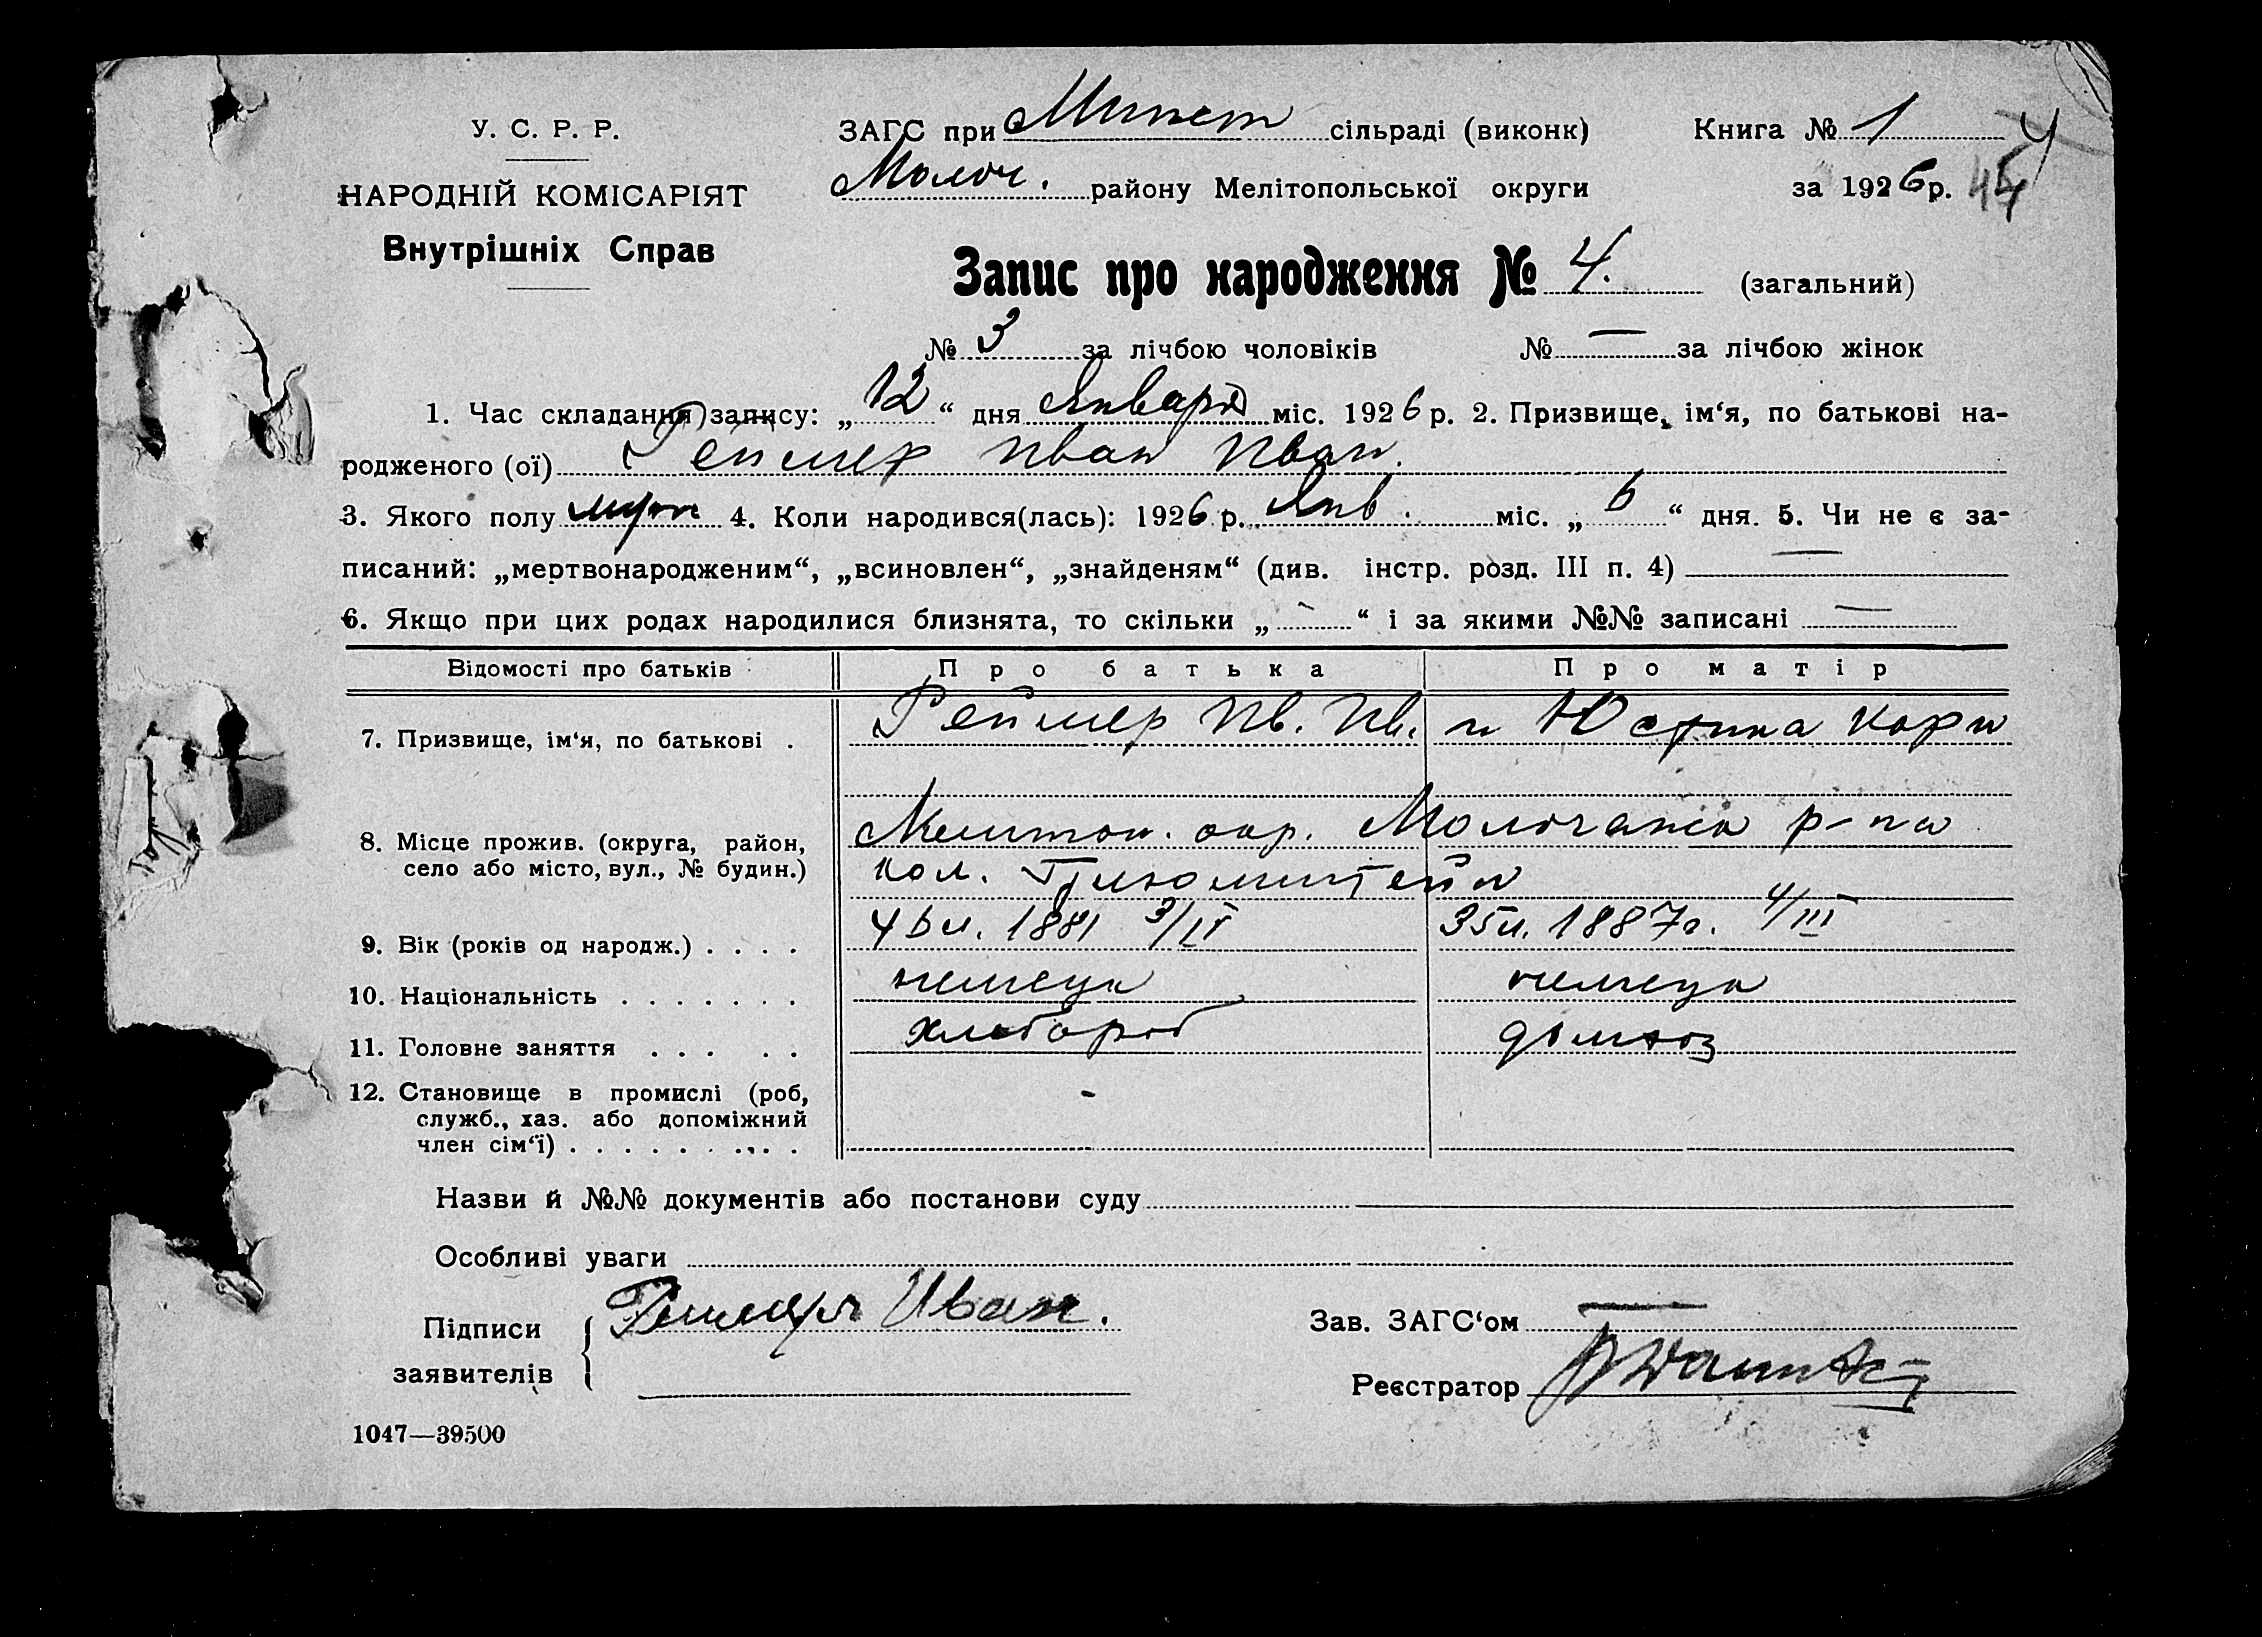 У. С. Р. Р.
НАРОДНІЙ КОМІСАРІЯТ
Внутрішніх Справ
ЗАГС при сільраді (виконк)
Молоч. району Мелітопольської округи
Книга № 1
за 1926 р.
Запис про народження № 4. (загальний)
№ 3 за лічбою чоловіків № — за лічбою жінок
1. Час складання запису: „12“ дня Января міс. 1926 р. 2. Призвище, ім‘я, по батькові на-
родженого (ої) Реймер Иван Иван.
3. Якого полу муж 4. Коли народився(лась): 1926 р. Янв. міс. „6“ дня. 5. Чи не є за-
писаний: „мертвонародженим“, „всиновлен“, „знайденям“ (див. інстр. розд. III п. 4) —
6. Якщо при цих родах народилися близнята, то скільки „—“ і за якими №№ записані —
Відомості про батьків Про батька Про матір
7. Призвище, ім‘я, по батькові . Реймер Ив. Ив. и Юстина Корн
8. Місце прожив. (округа, район, село або місто, вул., № будин.) Мелитоп. окр. Молочанск р-на
кол. Тигюмштейн
9. Вік (років од народж.) . . . . 1881 3/IV 1887г. 4/III
10. Національність . . . . . . . немецк немецк
11. Головне заняття . . . . . хлебороб домхоз
12. Становище в промислі (роб, служб., хаз. або допоміжний член сім‘ї) . . . . . . . . . . -
Назви й №№ документів або постанови суду
Особливі уваги
Підписи
заявителів
Реймер Иван.
Зав. ЗАГС‘ом —
Реєстратор
1047—39500